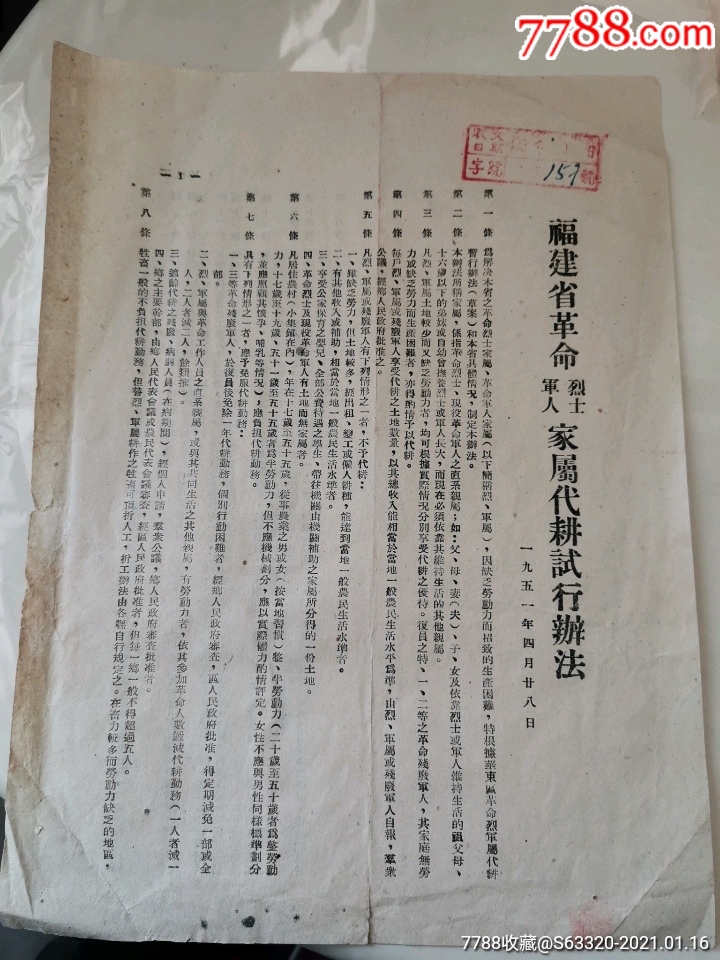 7788.com
收文
日期
字
號
號
日
157
福建省革命
烈士
軍人
家屬代耕試行辦法
一九五一年四月廿八日
第一條 爲解决本省之革命烈士家屬、革命軍人家屬(以下簡稱烈、軍屬),因缺乏勞動力而招致的生產困難,特根據華東區革命烈軍屬代耕
暫行辦法(草案)和本省具體情况,制定本辦法。
第二條 本辦法所稱家屬,係指革命烈士、現役革命軍人之直系親屬;如:父、母、妻(夫)、子、女及依靠烈士或軍人維持生活的祖父母、
十六歲以下的弟妹或自幼曾撫養烈士或軍人長大,而現在必須依靠其維持生活的其他親屬。
第三條 凡烈、軍屬土地較少而又缺乏勞動力者,均可根據實際情况分別享受代耕之優待。復員之特、一、二等之革命殘廢軍人,其家庭無勞
力或缺乏勞力而生產困難者,亦得酌情予以代耕。
第四條 每戶烈、軍屬或殘廢軍人享受代耕之土地數量,以其總收入能相當於當地一般農民生活水平爲準,由烈、軍屬或殘廢軍人自報,羣衆
公議,經鄉人民政府批准之。
第五條 凡烈、軍屬或殘廢軍人有下列情形之一者,不予代耕:
一、雖缺乏勞力,但土地較多,經出租、僱工或僱人耕種,能達到當地一般農民生活水準者。
二、有其他收入或補助,相當於當地一般農民生活水準者。
三、享受公家保育之嬰兒、全部公費待遇之學生、帶往機關由機關補助之家屬所分得的一份土地。
四、革命烈士及現役革命軍人有土地而無家屬者。
第六條 凡居住農村(小集鎮在內),年在十七歲至五十五歲,從事農業之男或女(按當地習慣)整、半勞動力(二十歲至五十歲者爲整勞動
力,十七歲至十九歲、五十一歲至五十五歲爲半勞動力,但不應機械劃分,應以實際體力酌情評定。女性不應與男性同樣標準劃分
,並應照顧其懷孕、哺乳等情况),應負担代耕勤務。
第七條 具有下列情形之一者,應予免服代耕勤務:
一、三等革命殘廢軍人,於復員後免除一年代耕勤務,個別行動困難者,經鄉人民政府審查,區人民政府批准,得定期減免一部或全
部。
二、烈、軍屬與革命工作人員之直系親屬,或與其共同生活之其他親屬,有勞動力者,依其參加革命人數遞減代耕勤務(一人者減一
人,二人者減二人,餘類推)。
三、鰥齡代耕之殘廢、病弱人員(在病期間),經個人申請,羣衆公議,鄉人民政府審查批准者。
四、鄉之主要幹部,由鄉人民代表會議或農民代表會議審查,經區人民政府批准者,但每一鄉一般不得超過五人。
第八條 牲畜一般的不負担代耕勤務,但替烈、軍屬耕作之牲畜可頂折人工,折工辦法由各縣自行規定之。在畜力較多而勞動力缺乏的地區,
—1—
7788收藏@S63320-2021.01.16